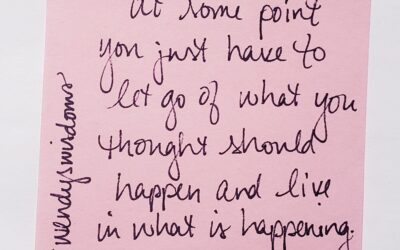 at some point
you just have to
let go of what you
thought should
happen and live
in what is happening.
wendyswisdoms